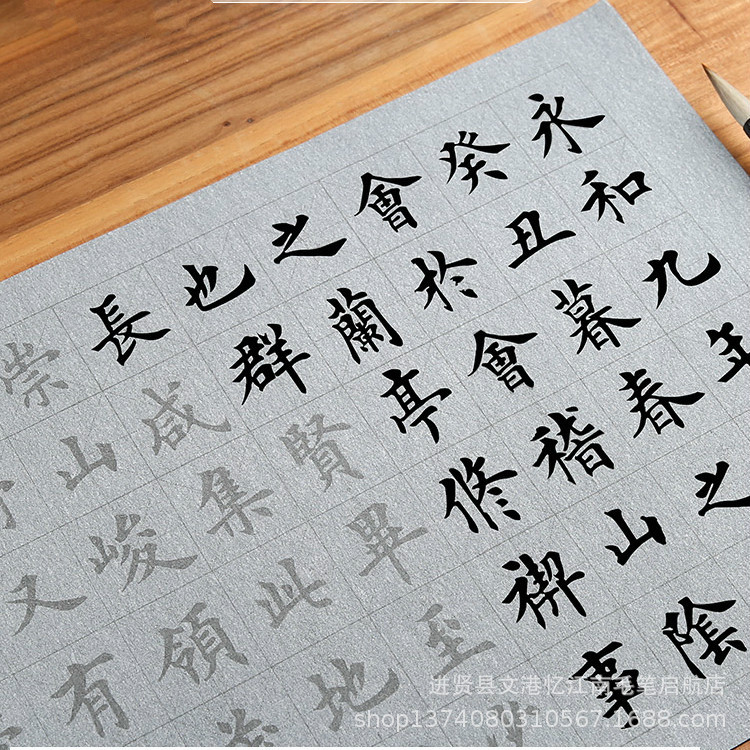 永和九年
癸丑暮春之
會於會稽山陰
之蘭亭修禊事
也群賢畢至
長咸集此地
崇山峻領
又有
进贤县文港忆江南毛笔启航店
shop1374080310567.1688.com